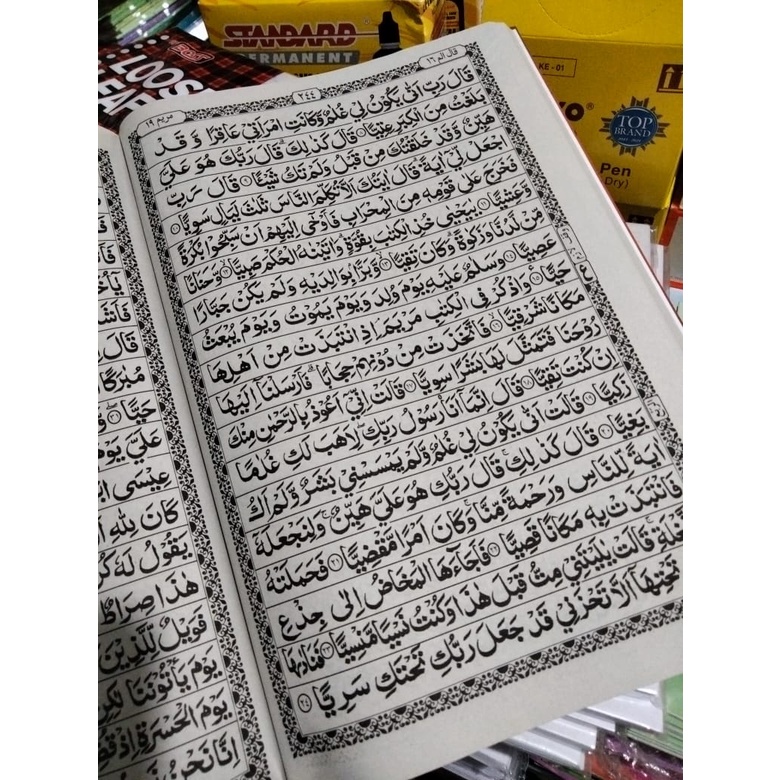 STANDARD
PERMANENT
LOOS
LEAF
KE - 01
TOP
BRAND
Pen
Dry)
قال الم ١٦
٢٤٤
مريم ١٩
قَالَ رَبِّ اَنّٰى يَكُوْنُ لِيْ غُلٰمٌ وَّكَانَتِ امْرَاَتِيْ عَاقِرًا وَّقَدْ
بَلَغْتُ مِنَ الْكِبَرِ عِتِيًّا ٨ قَالَ كَذٰلِكَ قَالَ رَبُّكَ هُوَ عَلَيَّ
هَيِّنٌ وَّقَدْ خَلَقْتُكَ مِنْ قَبْلُ وَلَمْ تَكُ شَيْئًا ٩ قَالَ رَبِّ
اجْعَلْ لِّيْ اٰيَةً قَالَ اٰيَتُكَ اَلَّا تُكَلِّمَ النَّاسَ ثَلٰثَ لَيَالٍ سَوِيًّا ١٠
فَخَرَجَ عَلٰى قَوْمِهٖ مِنَ الْمِحْرَابِ فَاَوْحٰى اِلَيْهِمْ اَنْ سَبِّحُوْا بُكْرَةً
وَّعَشِيًّا ١١ يٰيَحْيٰى خُذِ الْكِتٰبَ بِقُوَّةٍ وَاٰتَيْنٰهُ الْحُكْمَ صَبِيًّا ١٢ وَّحَنَانًا
مِّنْ لَّدُنَّا وَزَكٰوةً وَكَانَ تَقِيًّا ١٣ وَّبَرًّا بِوَالِدَيْهِ وَلَمْ يَكُنْ جَبَّارًا
عَصِيًّا ١٤ وَسَلٰمٌ عَلَيْهِ يَوْمَ وُلِدَ وَيَوْمَ يَمُوْتُ وَيَوْمَ يُبْعَثُ
حَيًّا ١٥ وَاذْكُرْ فِى الْكِتٰبِ مَرْيَمَ اِذِ انْتَبَذَتْ مِنْ اَهْلِهَا
مَكَانًا شَرْقِيًّا ١٦ فَاتَّخَذَتْ مِنْ دُوْنِهِمْ حِجَابًا فَاَرْسَلْنَا اِلَيْهَا
رُوْحَنَا فَتَمَثَّلَ لَهَا بَشَرًا سَوِيًّا ١٧ قَالَتْ اِنِّيْ اَعُوْذُ بِالرَّحْمٰنِ مِنْكَ
اِنْ كُنْتَ تَقِيًّا ١٨ قَالَ اِنَّمَا اَنَا رَسُوْلُ رَبِّكِ لِاَهَبَ لَكِ غُلٰمًا
زَكِيًّا ١٩ قَالَتْ اَنّٰى يَكُوْنُ لِيْ غُلٰمٌ وَّلَمْ يَمْسَسْنِيْ بَشَرٌ وَّلَمْ اَكُ
بَغِيًّا ٢٠ قَالَ كَذٰلِكِ قَالَ رَبُّكِ هُوَ عَلَيَّ هَيِّنٌ وَلِنَجْعَلَهٗ
اٰيَةً لِّلنَّاسِ وَرَحْمَةً مِّنَّا وَكَانَ اَمْرًا مَّقْضِيًّا ٢١ فَحَمَلَتْهُ
فَانْتَبَذَتْ بِهٖ مَكَانًا قَصِيًّا ٢٢ فَاَجَاءَهَا الْمَخَاضُ اِلٰى جِذْعِ
قَالَتْ يٰلَيْتَنِيْ مِتُّ قَبْلَ هٰذَا وَكُنْتُ نَسْيًا مَّنْسِيًّا ٢٣ فَنَادٰىهَا
تَحْتِهَا اَلَّا تَحْزَنِيْ قَدْ جَعَلَ رَبُّكِ تَحْتَكِ سَرِيًّا ٢٤
قَالَ
مُبٰرَكًا
حَيًّا ٣١
عَلَيَّ يَوْ
عِيْسَى ابْ
كَانَ لِلّٰهِ
يَقُوْلُ لَهٗ كُ
هٰذَا صِرَاطٌ
فَوَيْلٌ لِّلَّذِيْنَ
يَوْمَ يَأْتُوْنَنَا لٰكِ
يَوْمَ الْحَسْرَةِ اِذْ قُ
اِنَّا نَحْنُ